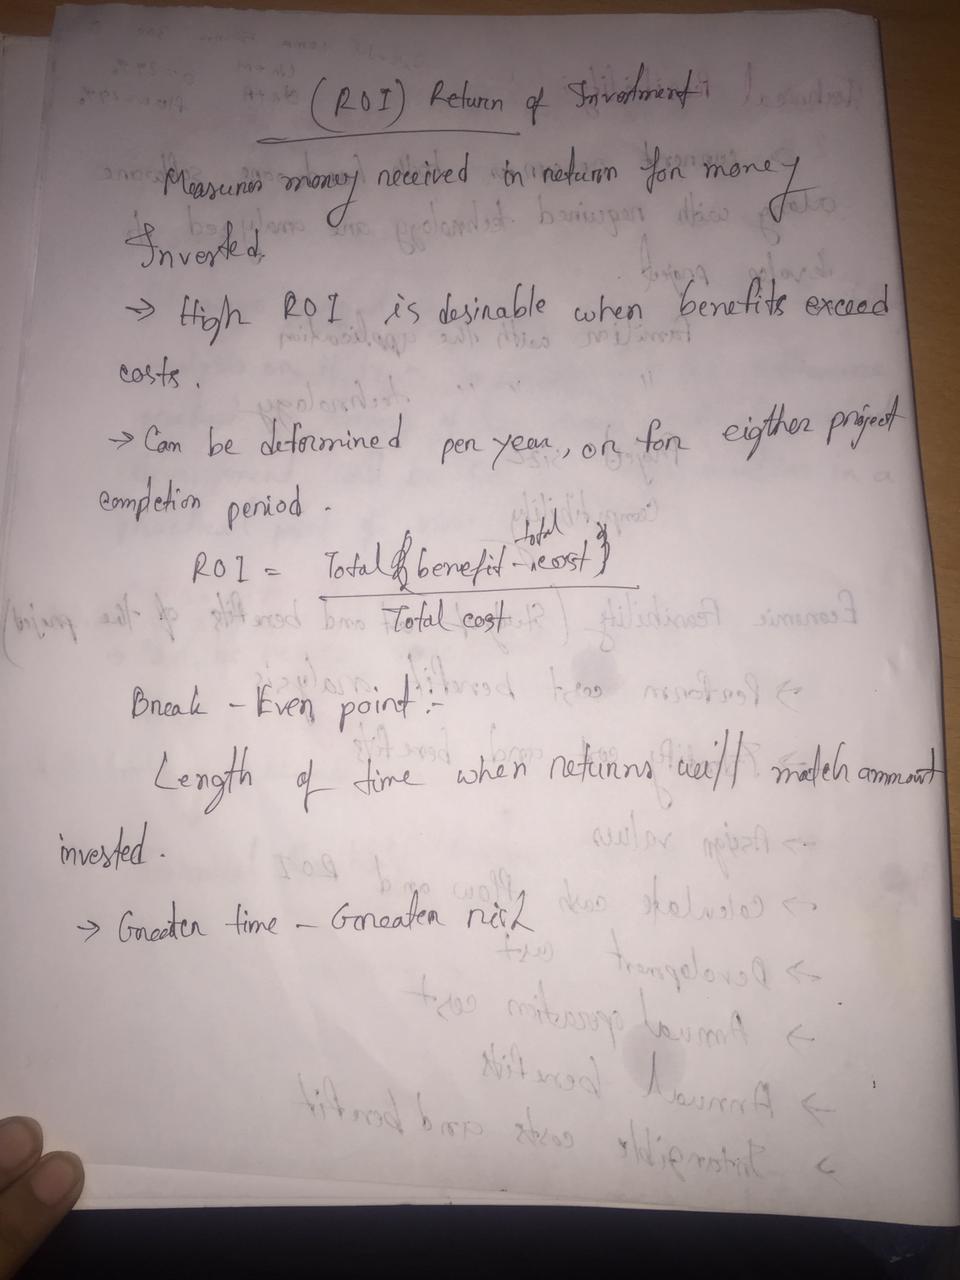 (ROI) Return of Investment
Measures money received in return for money
Invested.
→ High ROI is desirable when benefits exceed
costs.
→ Can be determined per year, or for eigther project
completion period.
total
ROI = Total {benefit - cost}
Total cost
Break - Even point :-
Length of time when returns will match ammount
invested.
→ Greater time - Greater risk